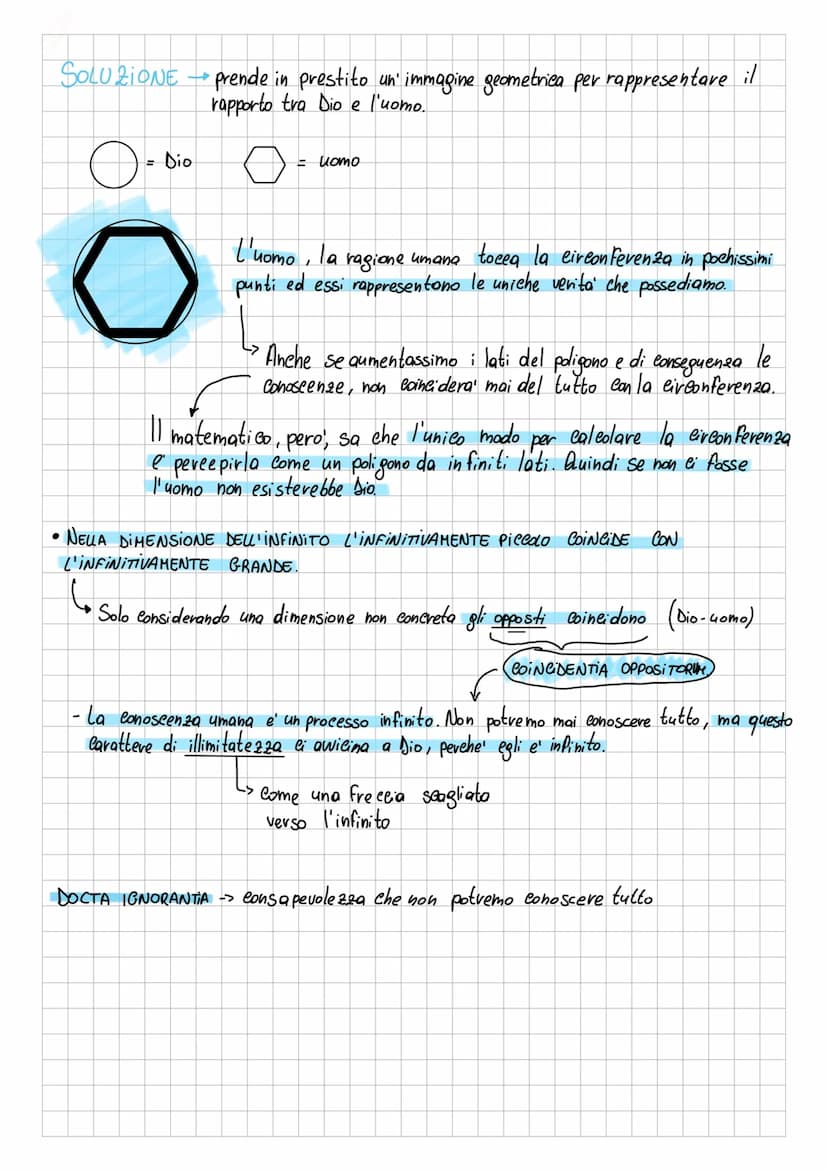 SOLUZIONE → prende in prestito un' immagine geometrica per rappresentare il
rapporto tra Dio e l'uomo.
= Dio = uomo
L'uomo, la ragione umana tocca la circonferenza in pochissimi
punti ed essi rappresentono le uniche verita' che possediamo.
Anche se aumentassimo i lati del poligono e di conseguenza le
conoscenze, non coinciderà' mai del tutto con la circonferenza.
Il matematico, pero', sa che l'unico modo per calcolare la circonferenza
e' percepirla come un poligono da infiniti lati. Quindi se non ci fosse
l'uomo non esisterebbe Dio.
• NELLA DIMENSIONE DELL'INFINITO L'INFINITIVAMENTE PICCOLO COINCIDE CON
L'INFINITIVAMENTE GRANDE.
Solo considerando una dimensione non concreta gli opposti coincidono (Dio-uomo)
COINCIDENTIA OPPOSITORUM
- La conoscenza umana e' un processo infinito. Non potremo mai conoscere tutto, ma questo
carattere di illimitatezza ci avvicina a Dio, perche' egli e' infinito.
Come una freccia scagliata
verso l'infinito
DOCTA IGNORANTIA -> consapevolezza che non potremo conoscere tutto